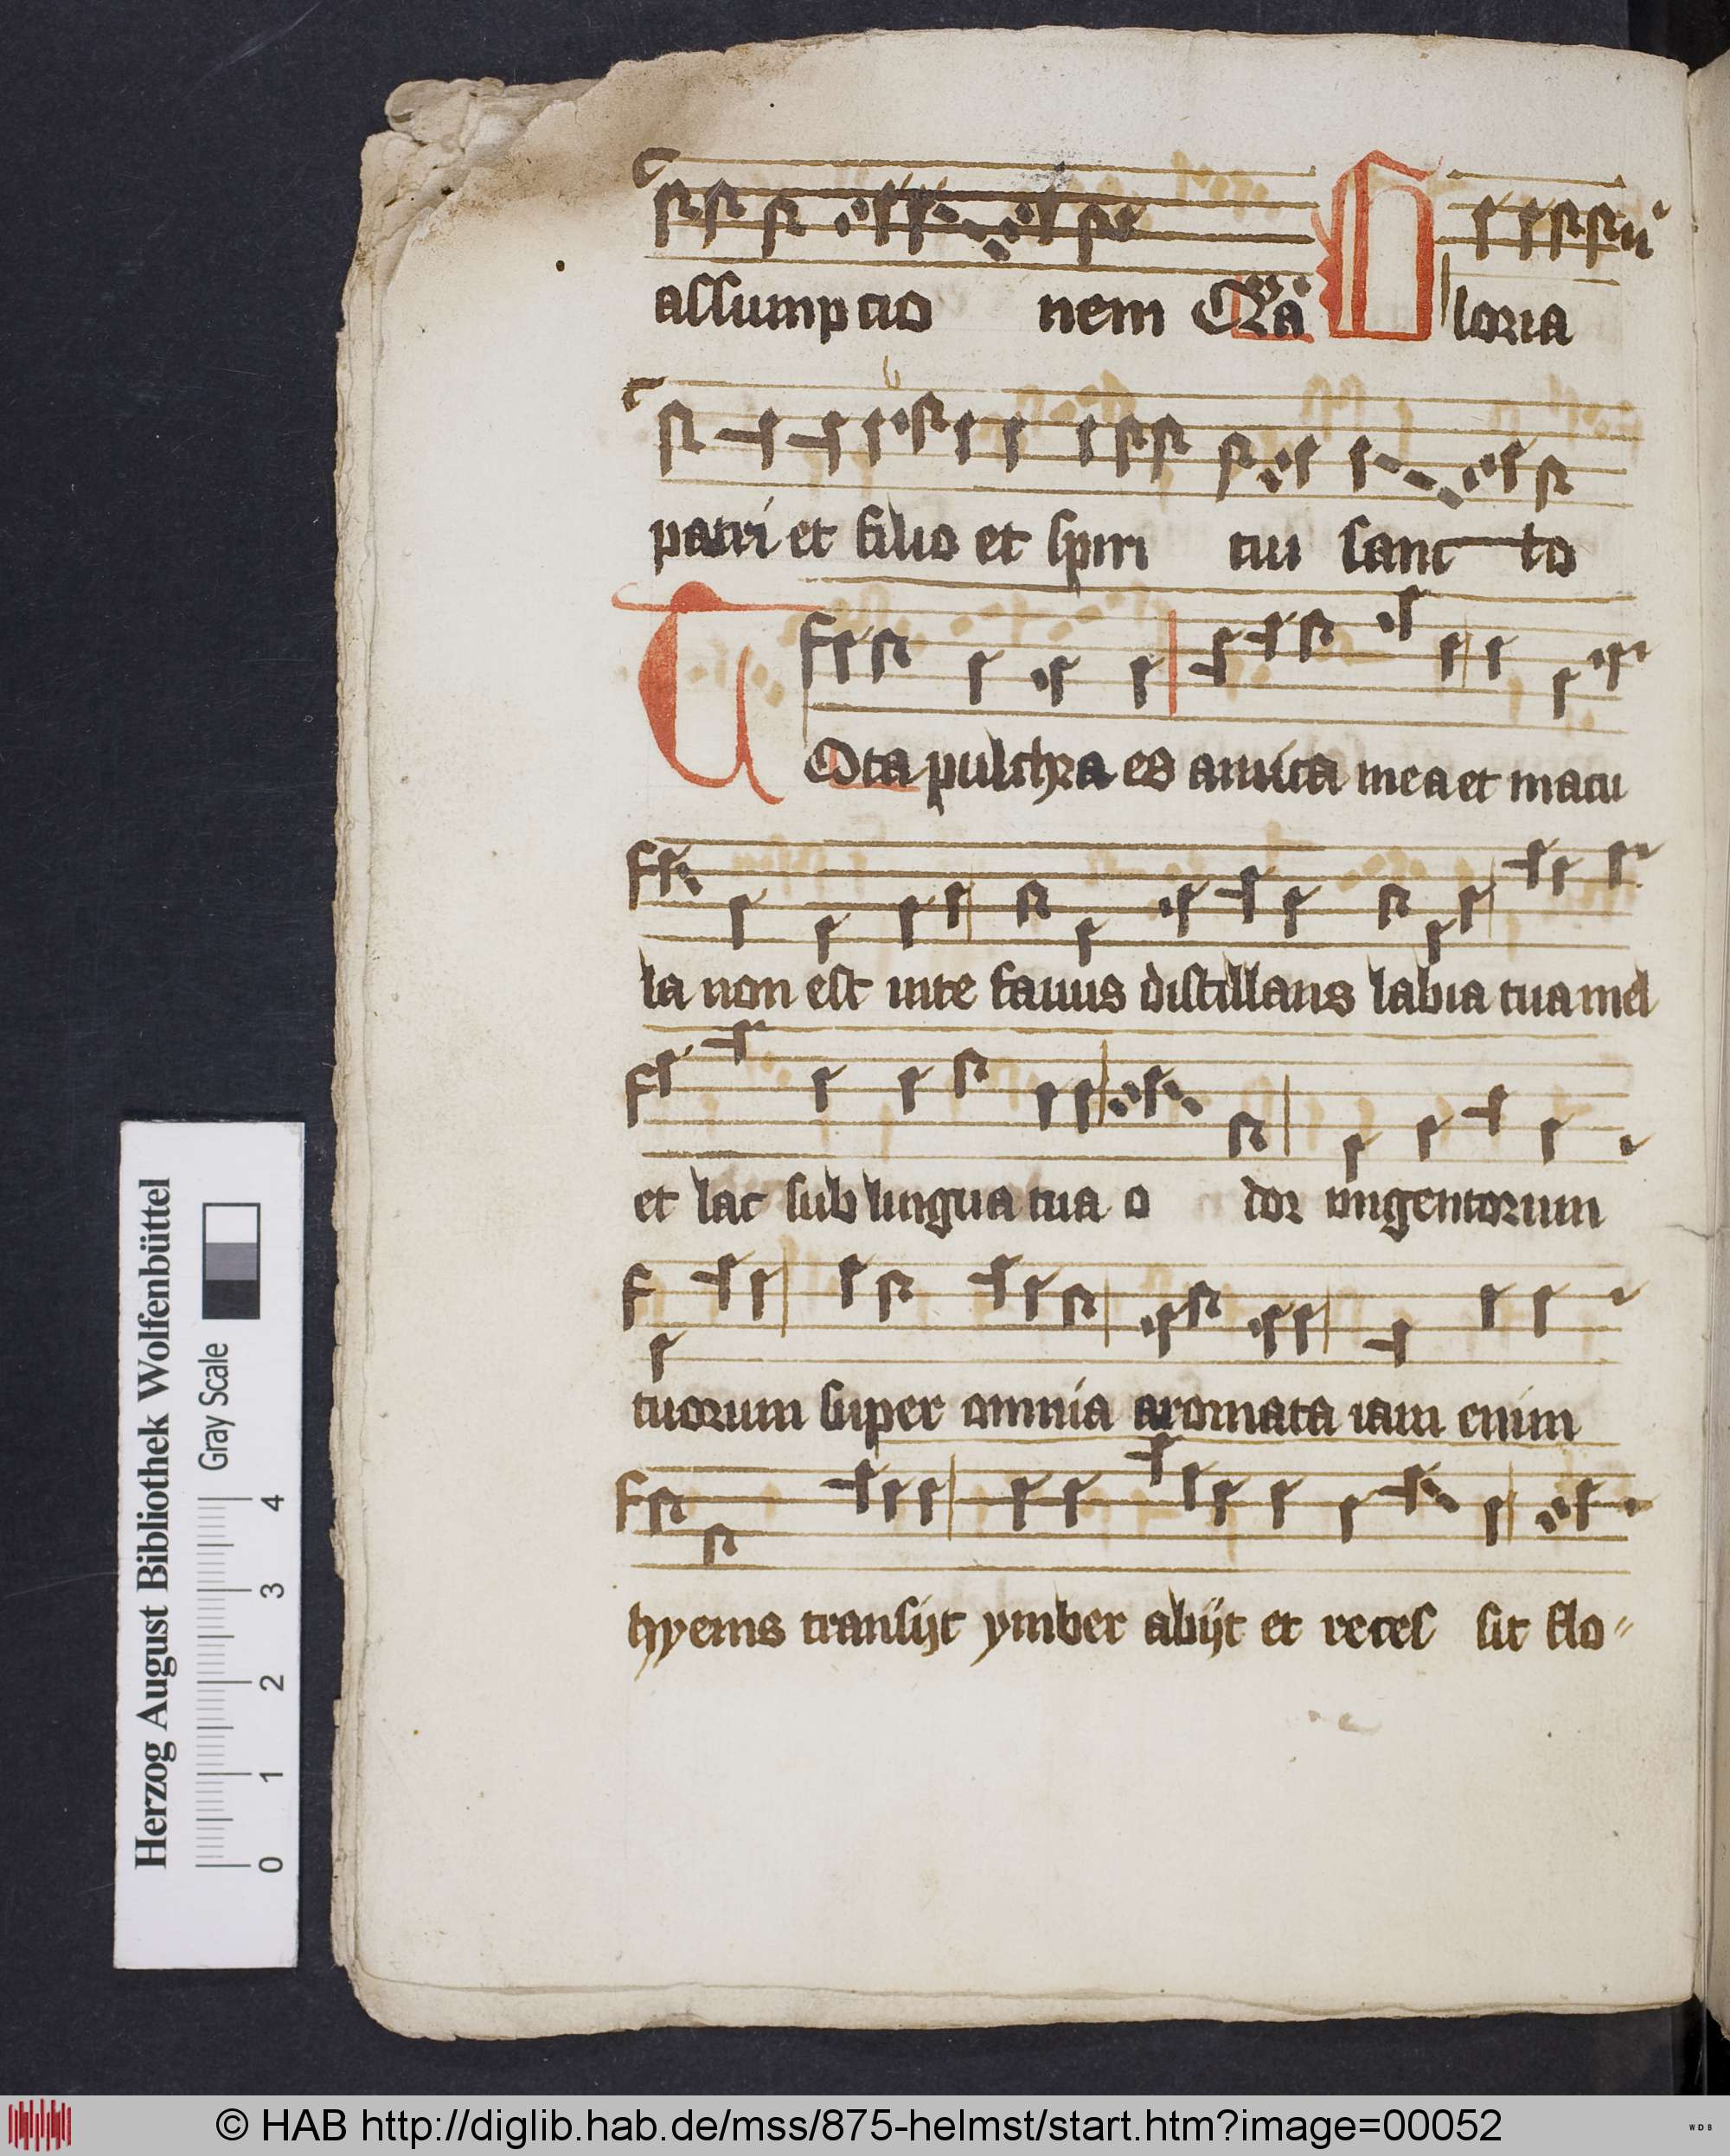 assumptio nem Gloria
patri et filio et spiri tui sanc to
TOta pulchra es amica mea et macu
la non est inte fauus distillans labia tua mel
et lac sub lingua tua o dor ungentorum
tuorum super omnia aromata iam enim
hyems transijt ymber abijt et reces sit flo
Herzog August Bibliothek Wolfenbüttel
Gray Scale
0 1 2 3 4
© HAB http://diglib.hab.de/mss/875-helmst/start.htm?image=00052
WDB